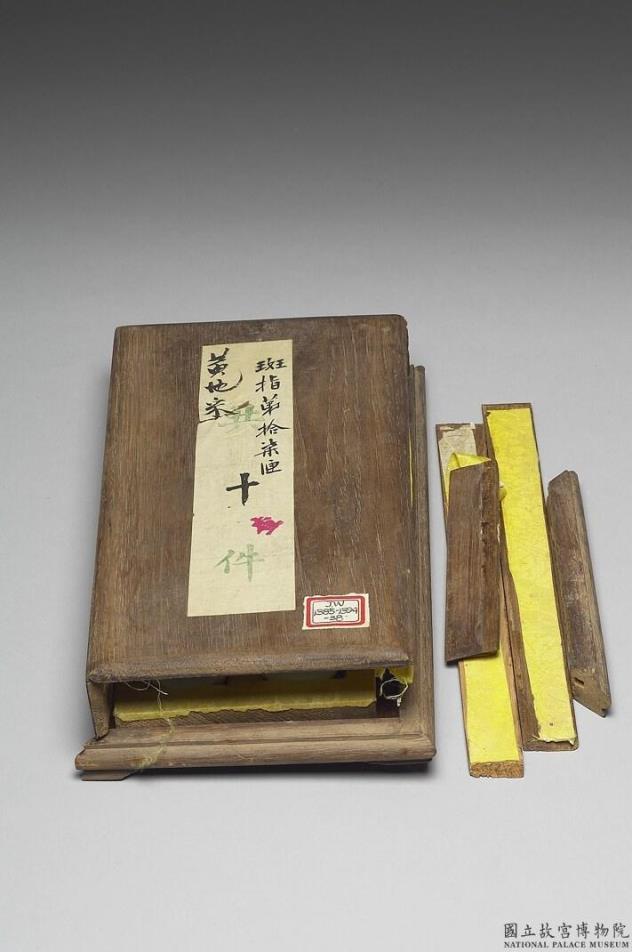 斑指第拾柒匣
黃地
十
件
JW
1385-1394
-38
國立故宮博物院
NATIONAL PALACE MUSEUM